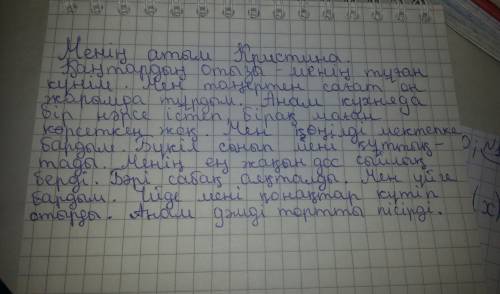 Менің атым Кристина.
Қаңтардың отызы - менің туған
күнім. Мен таңертен сағат он
жарымда тұрдым. Анам кухняда
бір нәрсе істеп, бірақ маған
көрсеткен жоқ. Мен көңілді мектепке
бардым. Бүкіл сынып мені құттық-
тады. Менің ең жақын дос сыйлық
берді. Бәрі сабақ аяқталды. Мен үйге
бардым. Үйде мені қонақтар күтіп
отырды. Анам дәмді тортты пісірді.
(х)